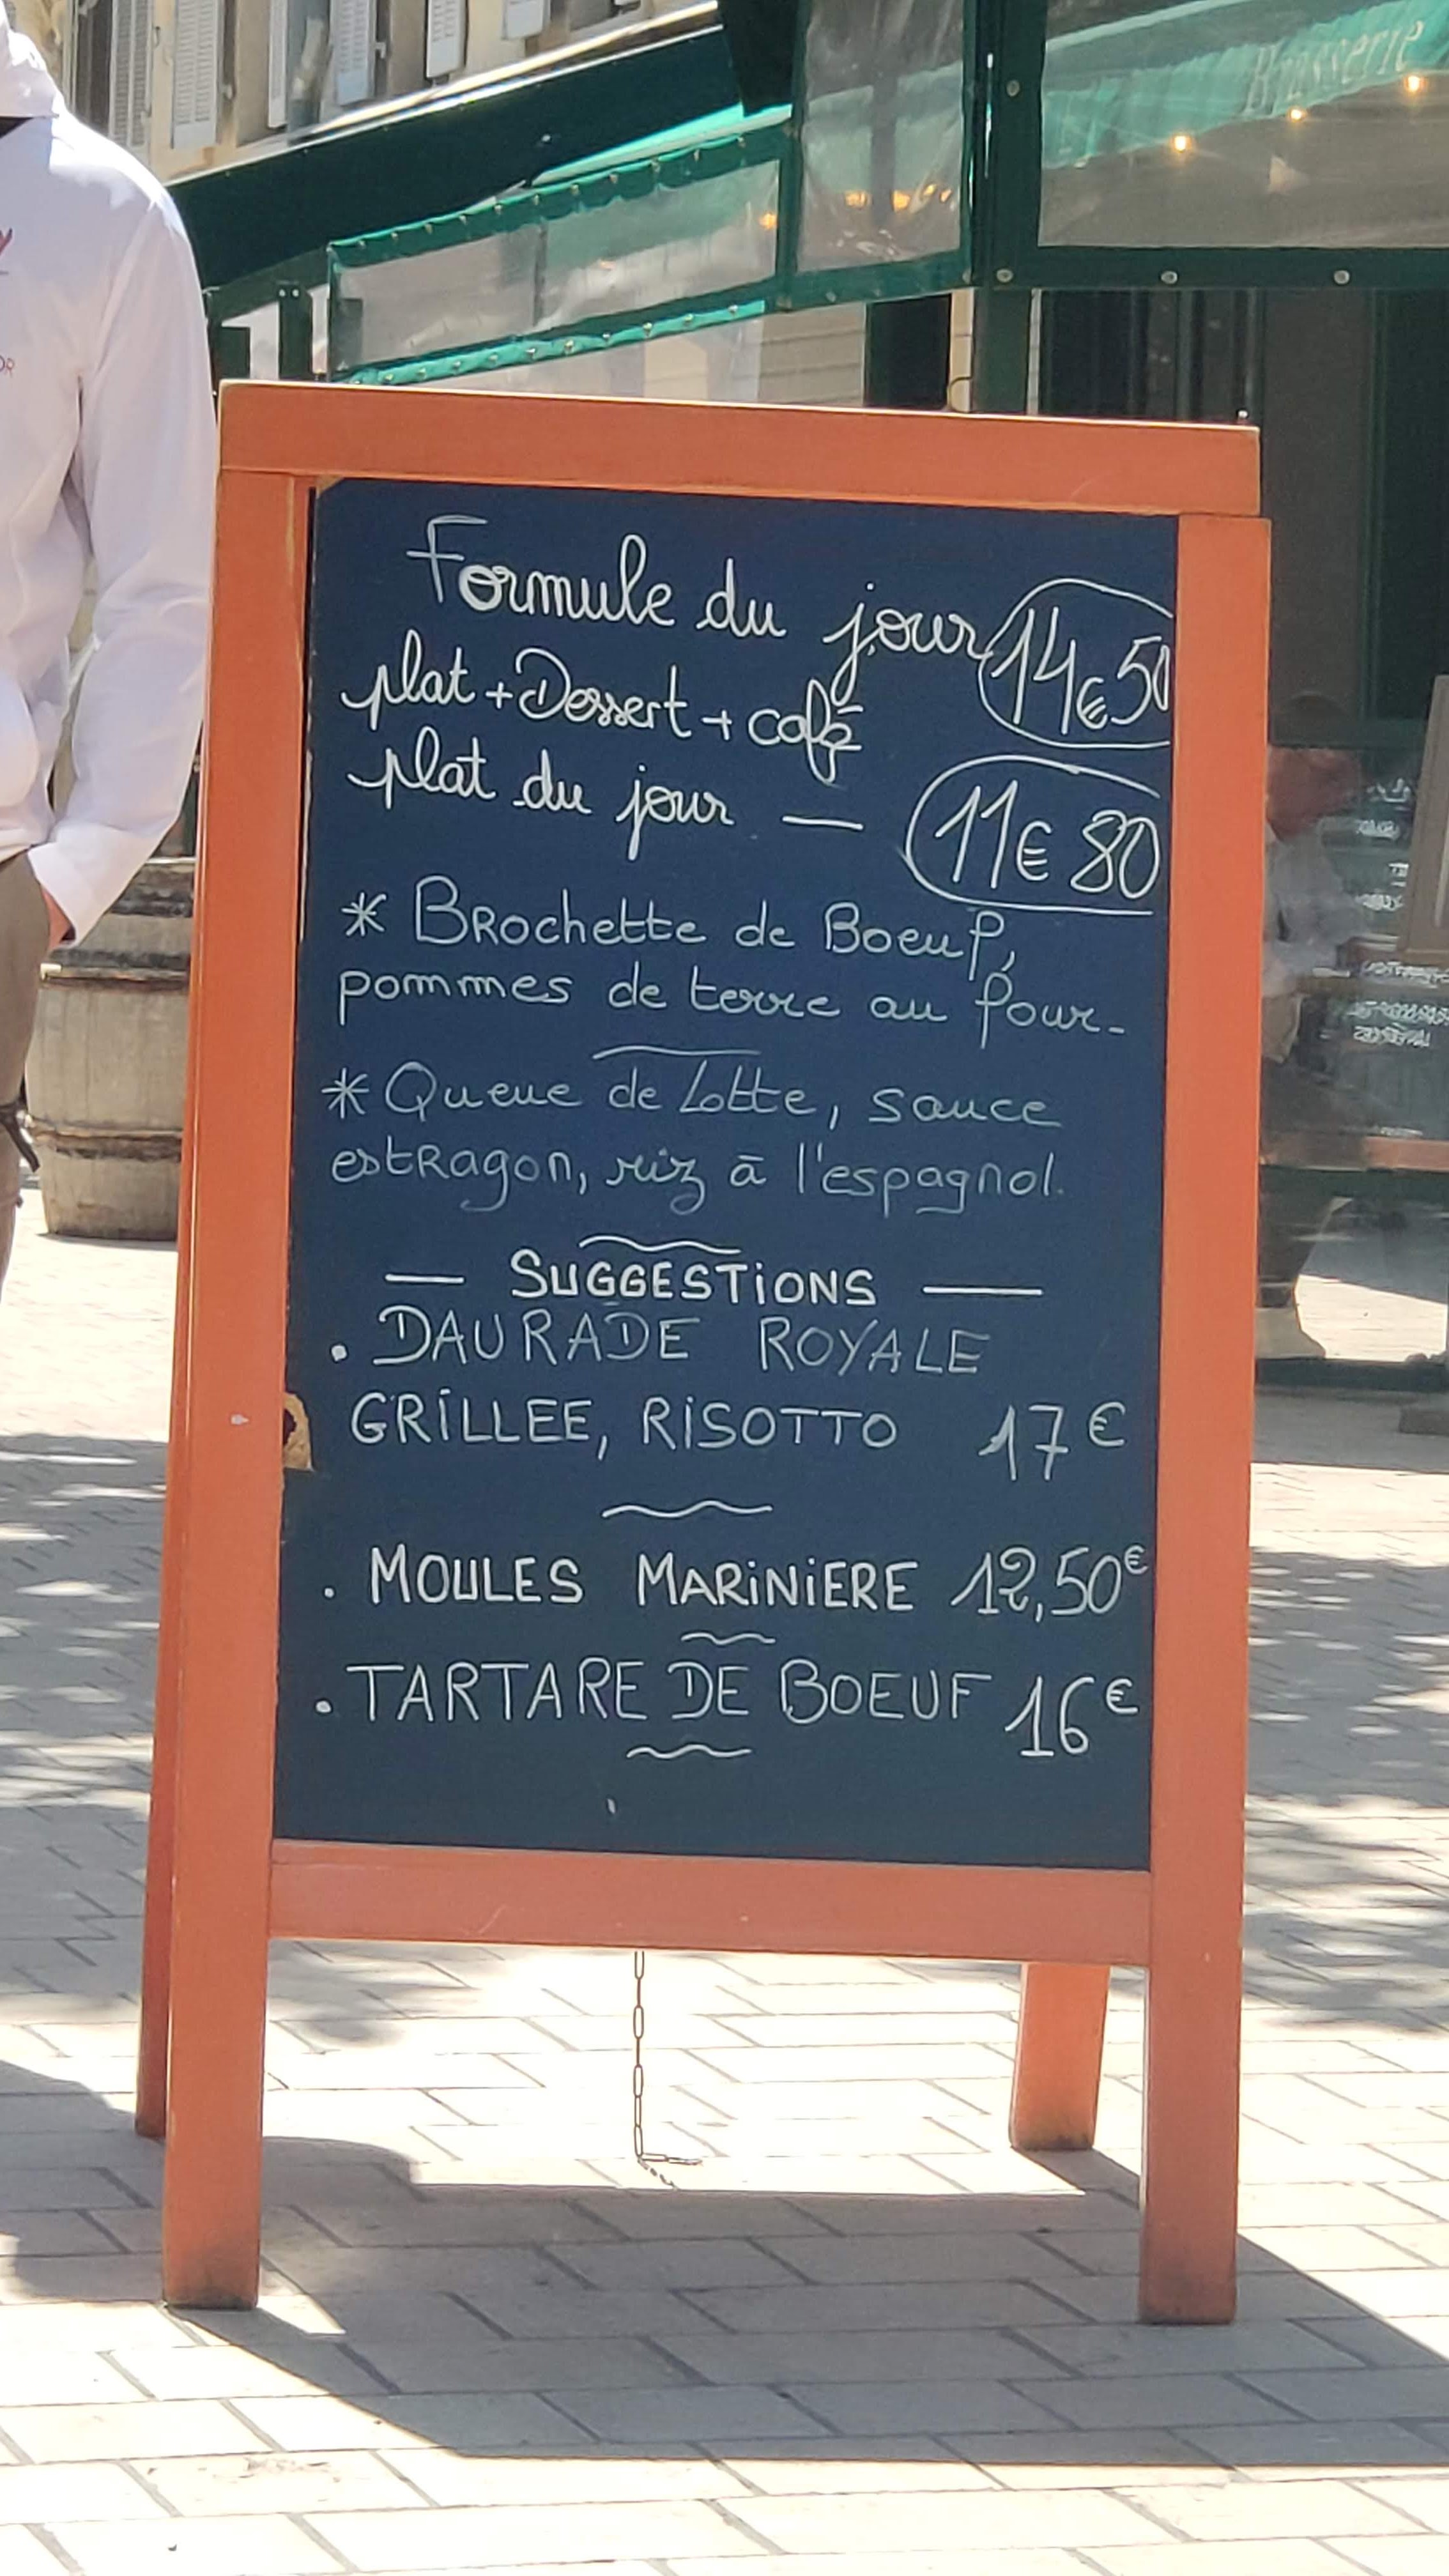 Brasserie
Formule du jour 14€50
plat + Dessert + café
plat du jour — 11€80
* Brochette de Boeuf,
pommes de terre au four-
* Queue de Lotte, sauce
estragon, riz à l'espagnol.
— SUGGESTIONS —
. DAURADE ROYALE
GRILLEE, RISOTTO 17€
. MOULES MARINIERE 12,50€
. TARTARE DE BOEUF 16€